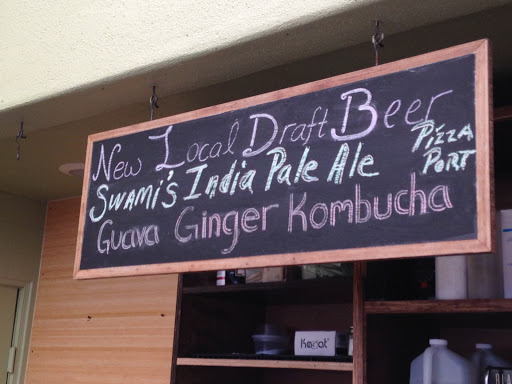 New Local Draft Beer
Swami's India Pale Ale
Pizza
Port
Guava Ginger Kombucha